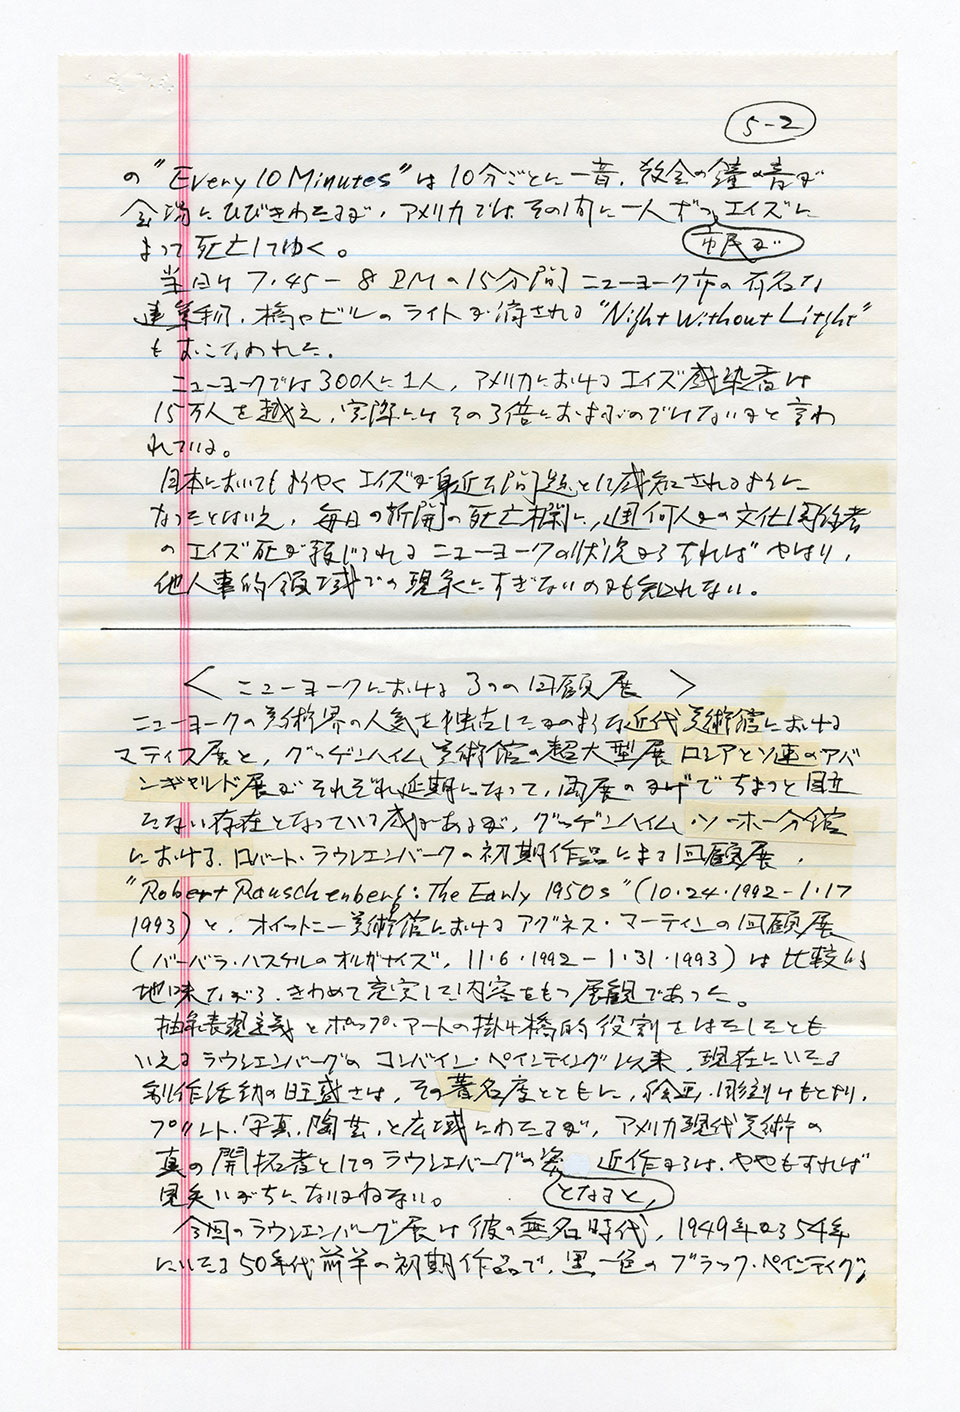 5-2
の"Every 10 Minutes"は10分ごとに一音、教会の鐘の音が
会場にひびきわたるが、アメリカでは、その間に一人ずつエイズに
市民が
よって死亡してゆく。
当日は7.45-8 PMの15分間ニューヨーク市の有名な
建築物、橋やビルのライトが消される"Night Without Litght"
もおこなわれた。
ニューヨークでは300人に1人、アメリカにおけるエイズ感染者は
15万人を越え、実際にはその3倍におよぶのではないかと言わ
れている。
日本においてもようやくエイズが身近な問題として感知されるように
なったとはいえ、毎日の新聞の死亡欄に、週何人かの文化関係者
のエイズ死が報じられるニューヨークの状況からすればやはり、
他人事的領域での現象にすぎないのかも知れない。
<ニューヨークにおける3つの回顧展>
ニューヨークの美術界の人気を独占したかのような近代美術館における
マティス展と、グッゲンハイム美術館の超大型展ロシアとソ連のアバ
ンギャルド展がそれぞれ延期になって、両展のかげでちょっと目立
たない存在となっていた感があるが、グッゲンハイム・ソーホー分館
における、ロバート・ラウシェンバーグの初期作品による回顧展、
"Robert Rauschenberg: The Early 1950s"(10・24・1992-1・17
1993)と、ホイットニー美術館におけるアグネス・マーティンの回顧展
(バーバラ・ハスケルのオルガナイズ、11・6・1992-1・31・1993)は比較的
地味ながら、きわめて充実した内容をもつ展観であった。
抽象表現主義とポップ・アートの掛け橋的役割をはたしたとも
いえるラウシェンバーグのコンバイン・ペインティング以来、現在にいたる
制作活動の旺盛さは、その著名度とともに、絵画、彫刻はもとより、
プリント、写真、陶芸、と広域にわたるが、アメリカ現代美術の
真の開拓者としてのラウシェンバーグの姿 近作からは、ややもすれば
となると、
見失いがちになりかねない。
今回のラウシェンバーグ展は彼の無名時代、1949年から54年
にいたる50年代前半の初期作品で、黒一色のブラック・ペインティング、